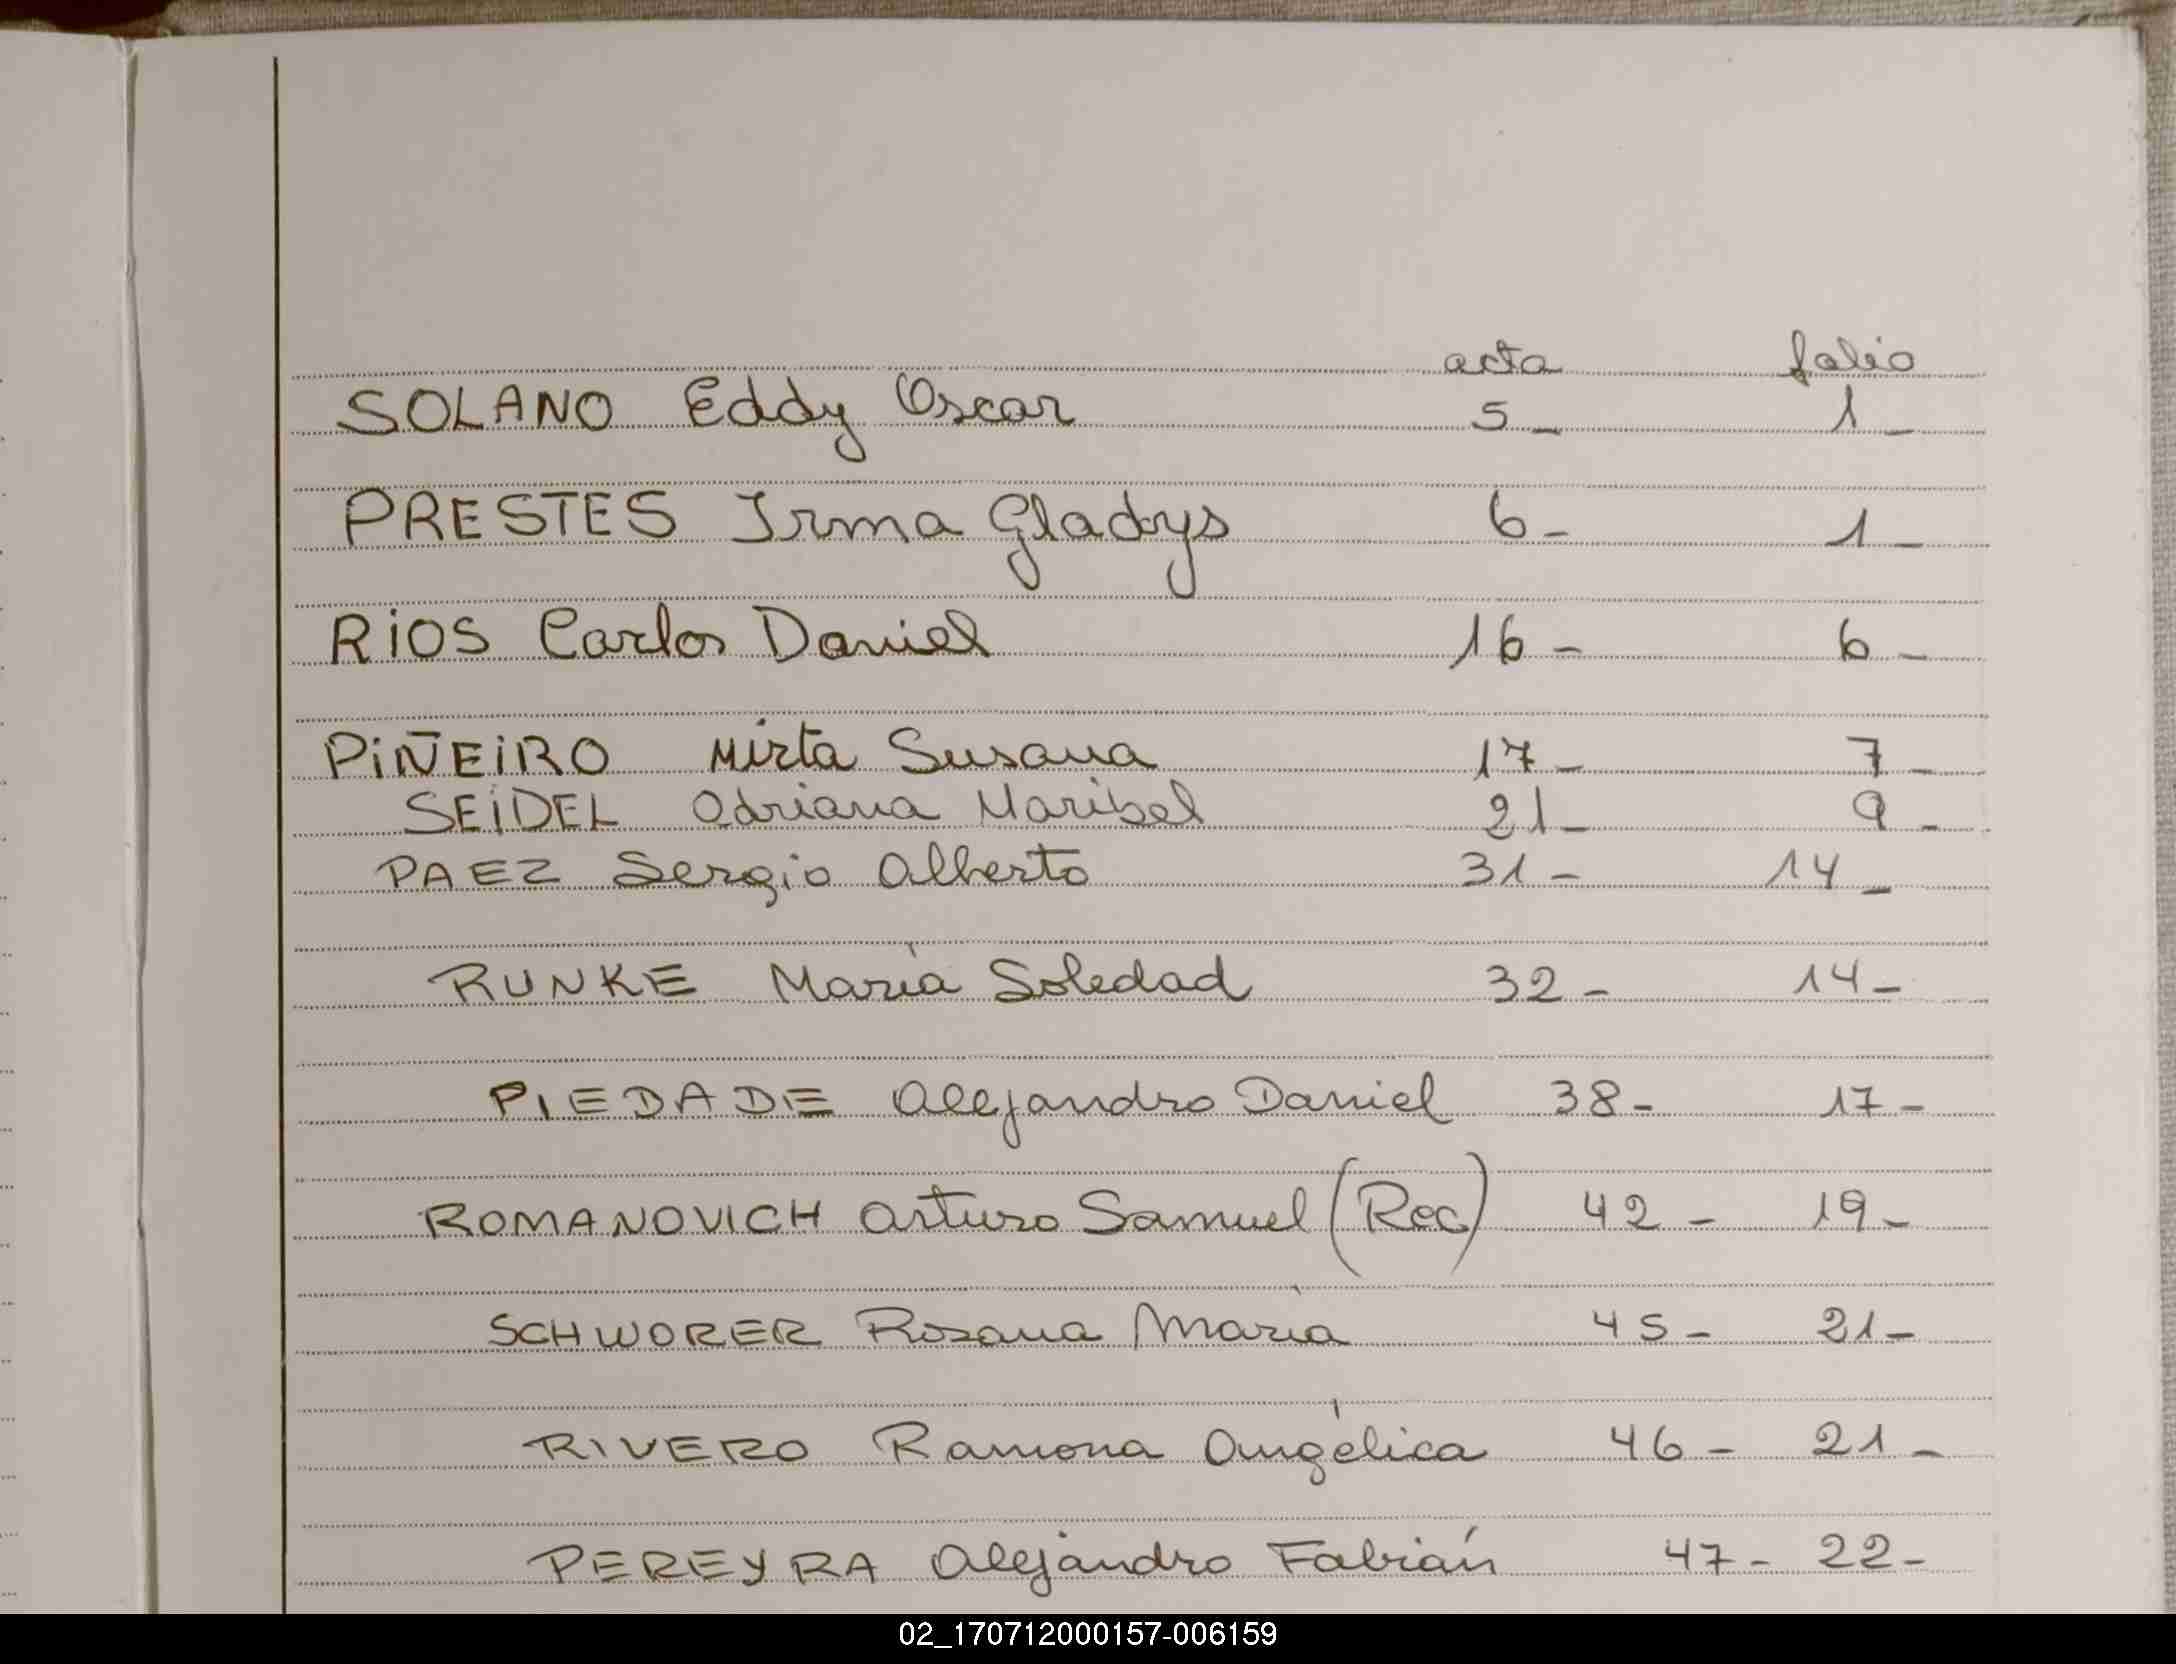 acta folio
SOLANO Eddy Oscar 5_ 1_
PRESTES Irma Gladys 6_ 1_
RiOS Carlos Daniel 16_ 6_
PiÑEiRO Mirta Susana 17_ 7_
SEiDEL Adriana Maribel 21_ 9_
PAEZ Sergio Alberto 31_ 14_
RUNKE María Soledad 32_ 14_
PIEDADE Alejandro Daniel 38_ 17_
ROMANOVICH Arturo Samuel (Rec) 42_ 19_
SCHWORER Rosana María 45_ 21_
RIVERO Ramona Angélica 46_ 21_
PEREYRA Alejandro Fabián 47_ 22_
02_170712000157-006159